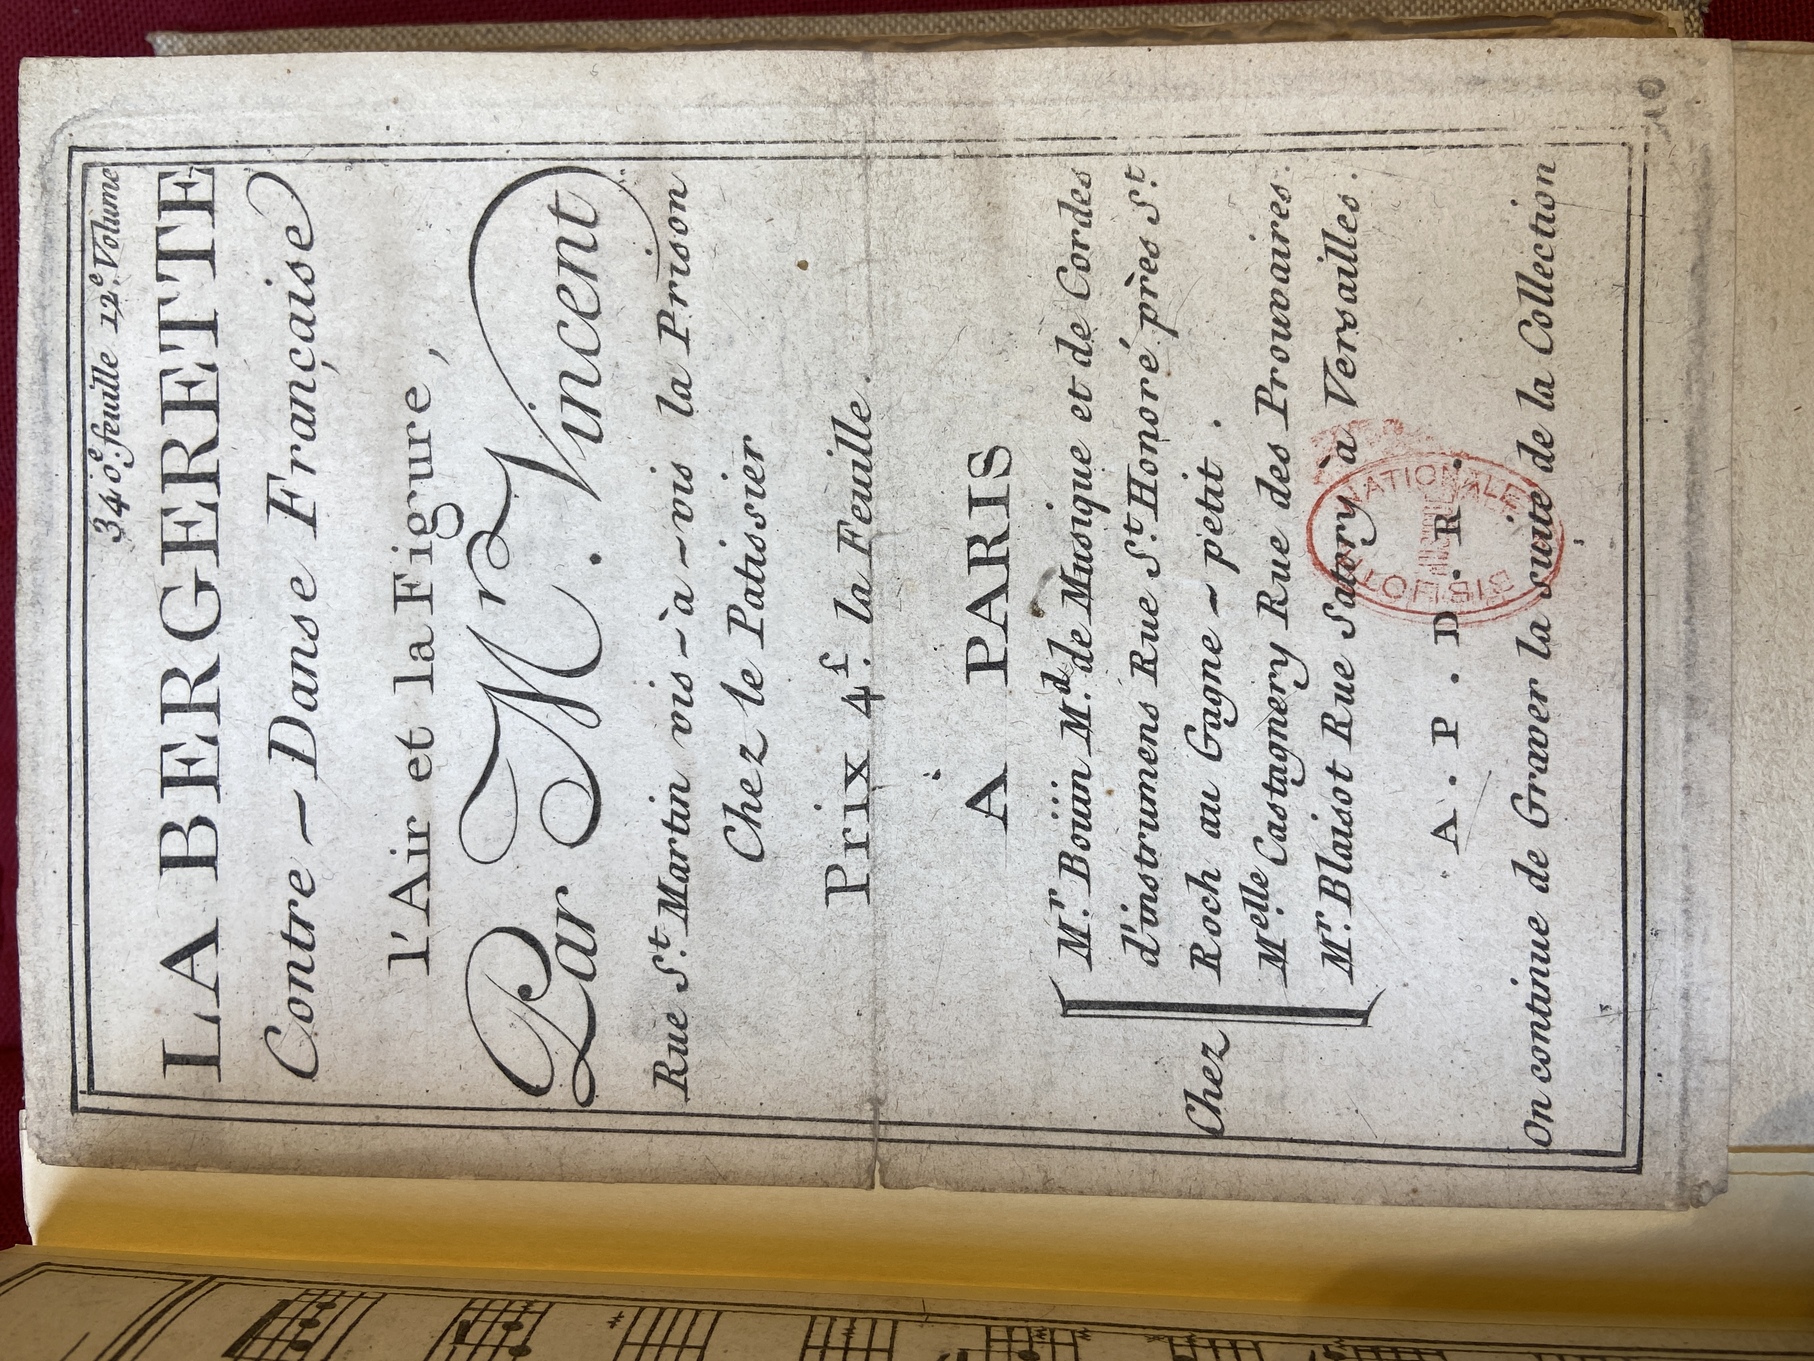 340.e feuille 12.e Volume
LA BERGERETTE
Contre - Danse Française
l'Air et la Figure,
Par M.r Vincent
Rue S.t Martin vis - à - vis la Prison
Chez le Patissier
Prix 4.f la Feuille.
À PARIS
Chez
M.r Bouin M.d de Musique et de Cordes
d'instrumens Rue S.t Honoré près S.t
Roch au Gagne - petit.
M.elle Castagnery Rue des Prouvaires.
M.r Blaisot Rue Satory à Versailles.
A. P. D. R.
On continue de Graver la suite de la Collection
BIBLIOTH NATIONALE
10